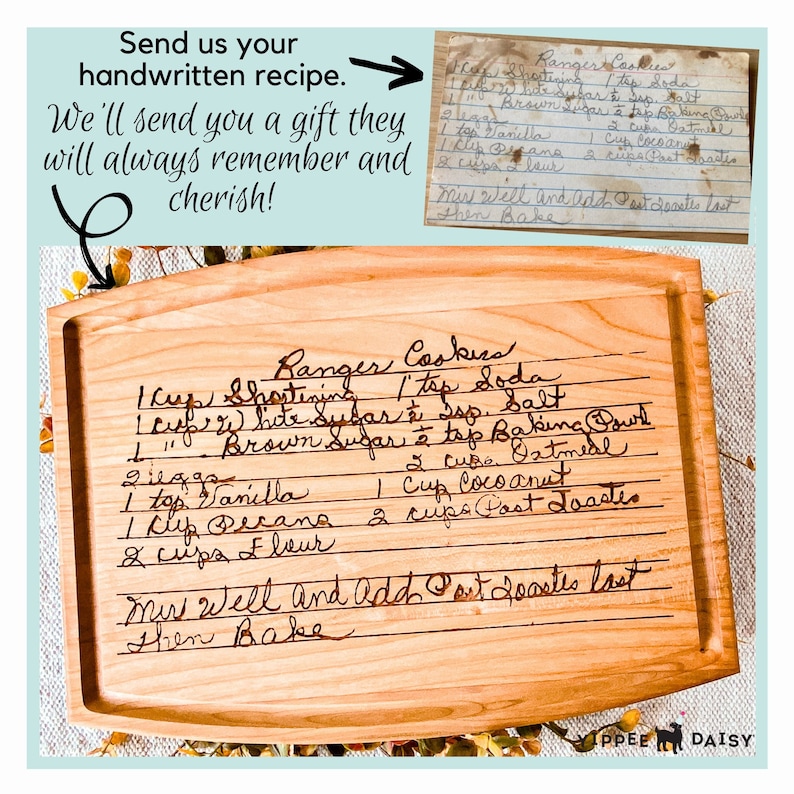 Send us your
handwritten recipe.
We'll send you a gift they
will always remember and
cherish!
Ranger Cookies
1 Cup Shortining 1 tsp Soda
1 cup White Sugar ½ Tsp. Salt
1 " Brown Sugar ½ tsp Baking Powd
2 eggs 2 cups Oatmeal
1 tsp Vanilla 1 Cup Cocoanut
1 Cup Pecans 2 cups Post Toastes
2 cups Flour
Mix Well And Add Post Toastes last
Then Bake
Ranger Cookies
1 Cup Shortining 1 tsp Soda
1 cup White Sugar ½ Tsp. Salt
1 " Brown Sugar ½ tsp Baking Powd
2 eggs 2 cups Oatmeal
1 tsp Vanilla 1 Cup Cocoanut
1 Cup Pecans 2 cups Post Toastes
2 cups Flour
Mix Well And Add Post Toastes last
Then Bake
YIPPEE DAISY